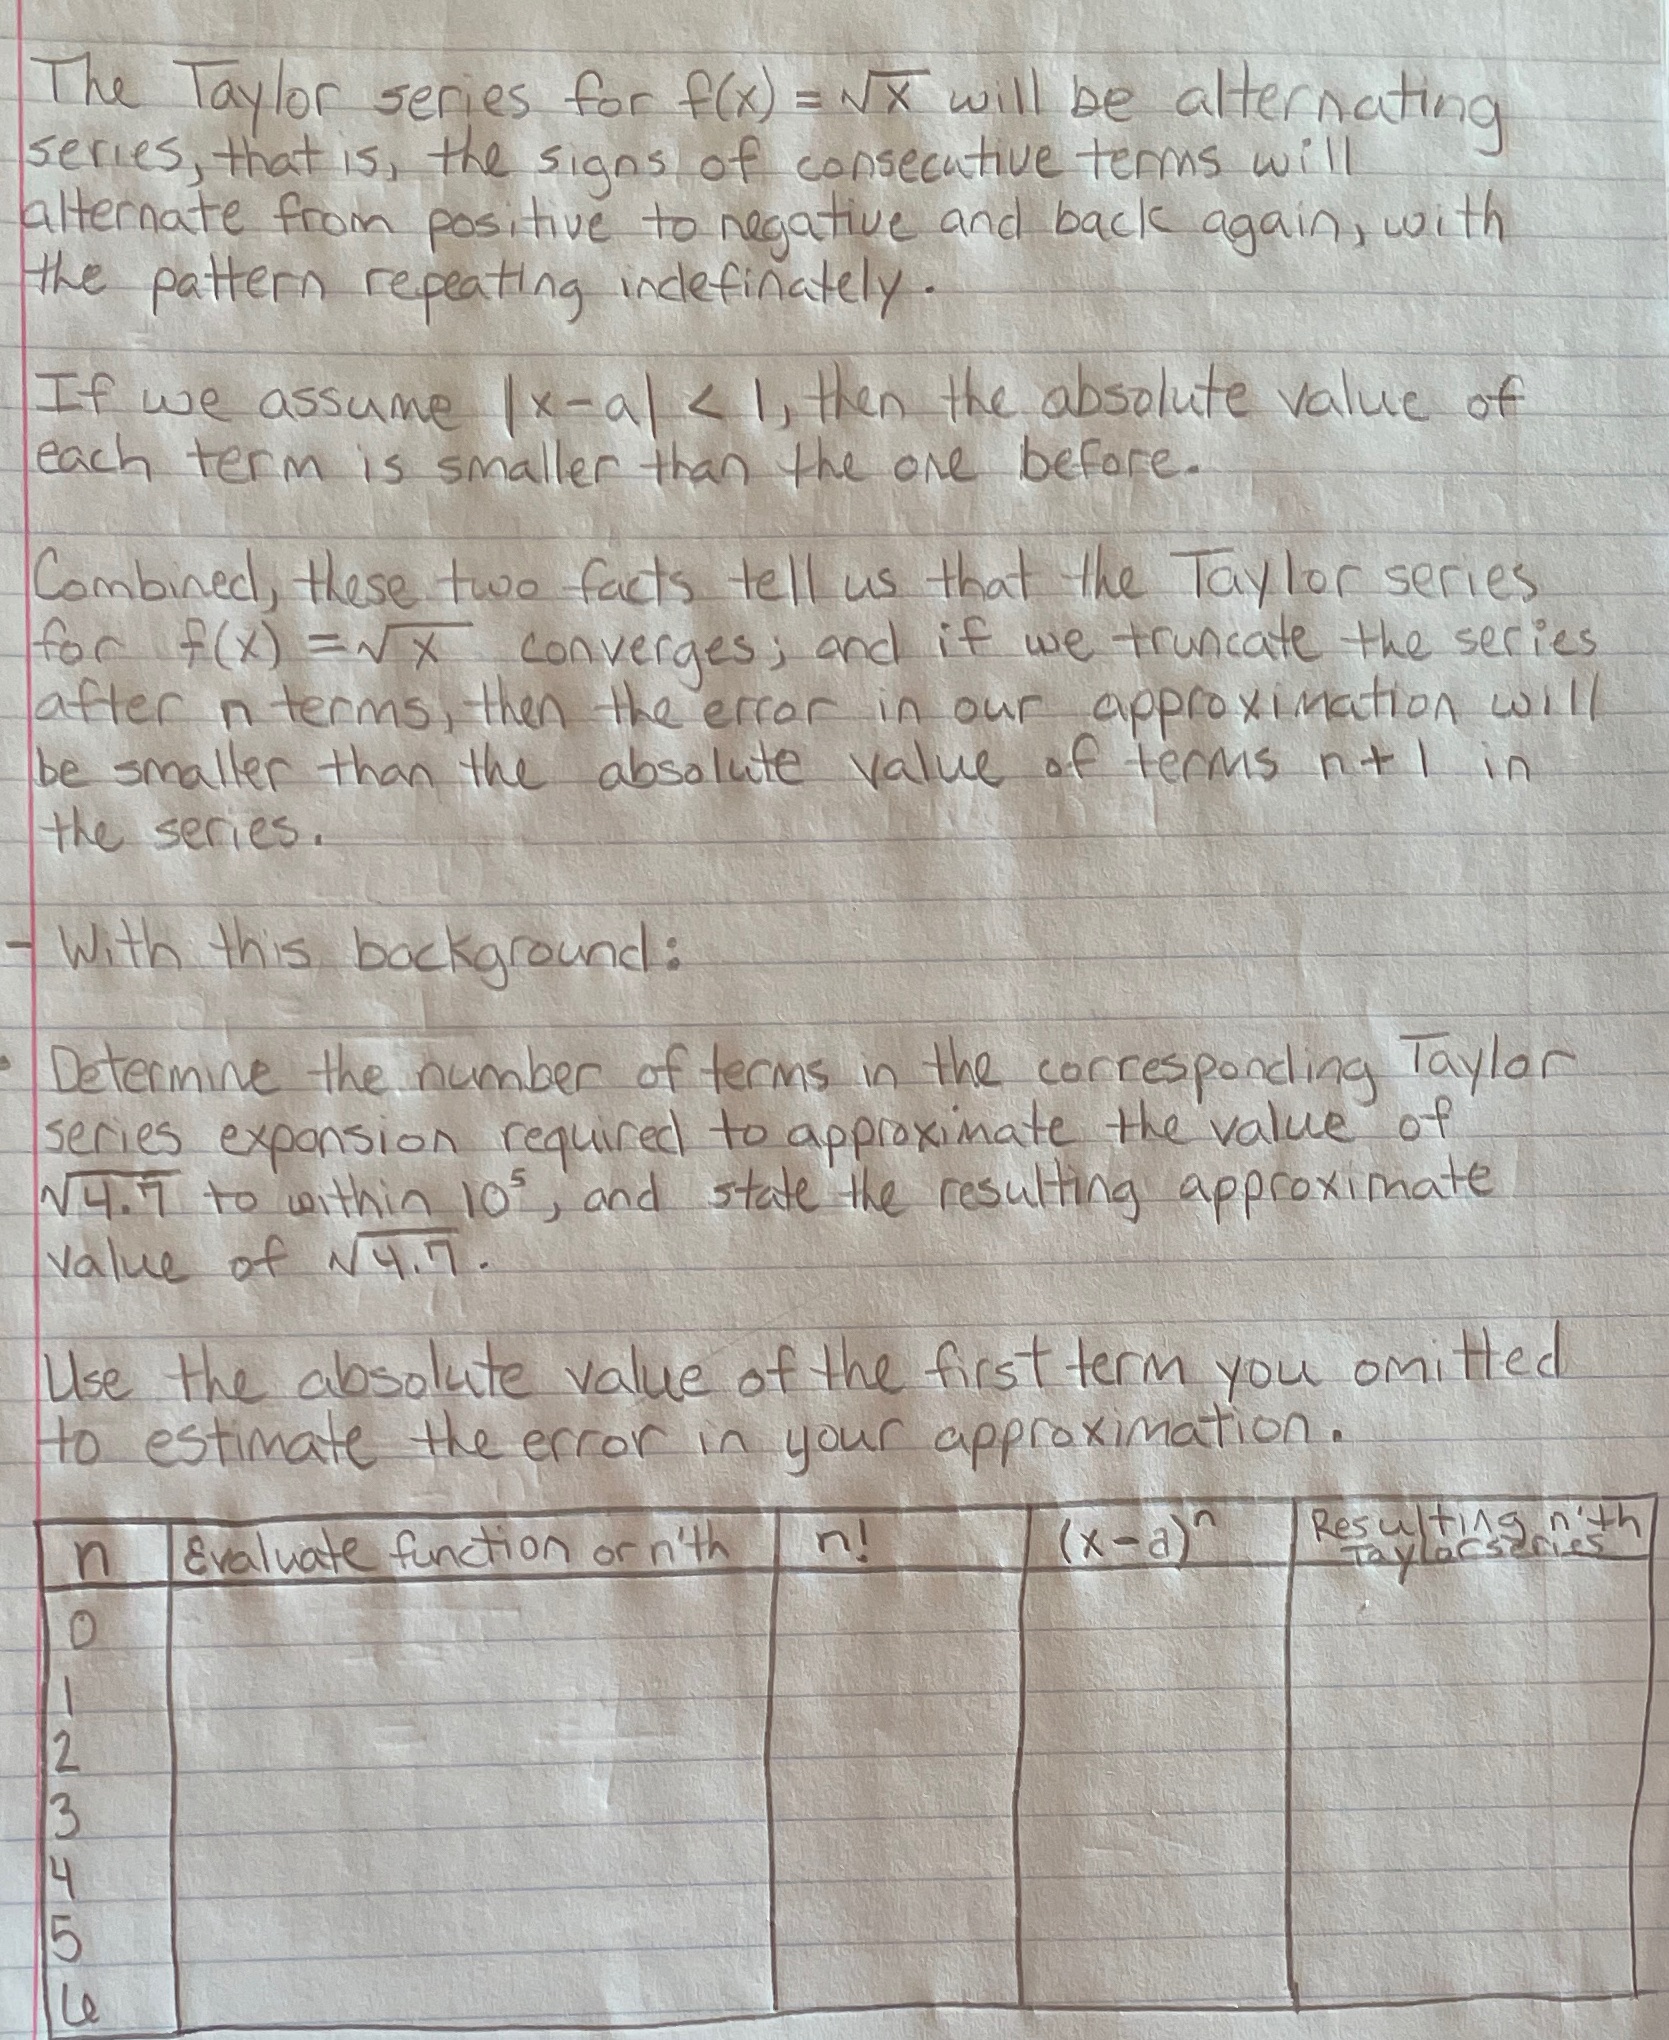 The Taylor series for f(x) = √x will be alternating
series, that is, the signs of consecutive terms will
alternate from positive to negative and back again, with
the pattern repeating indefinately.
If we assume |x-a| < 1, then the absolute value of
each term is smaller than the one before.
Combined, these two facts tell us that the Taylor series
for f(x) = √x converges; and if we truncate the series
after n terms, then the error in our approximation will
be smaller than the absolute value of terms n+1 in
the series.
- With this background:
• Determine the number of terms in the corresponding Taylor
series expansion required to approximate the value of
√4.7 to within 10⁵, and state the resulting approximate
value of √4.7.
Use the absolute value of the first term you omitted
to estimate the error in your approximation.
n Evaluate function or n'th n! (x-a)ⁿ Resulting n'th
Taylor series
0
1
2
3
4
5
6